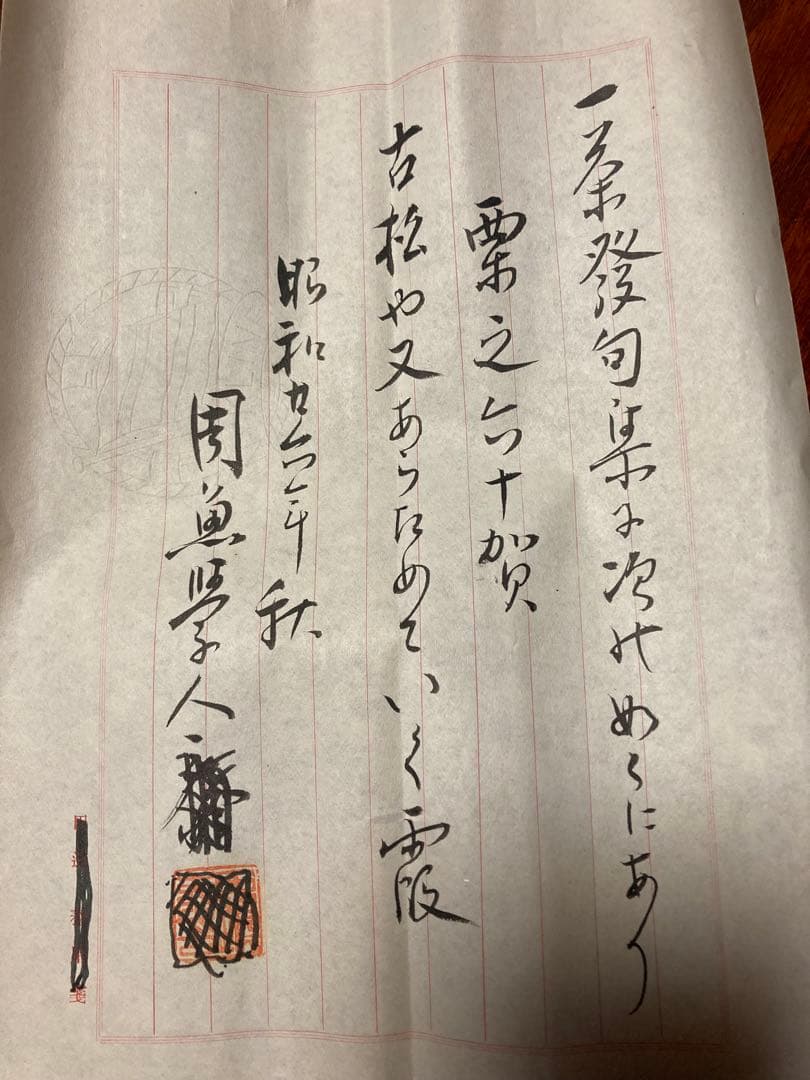 一茶發句集に次の如くにあり
栗之六十賀
古松や又あらためていく霞
昭和廿六年 秋
周魚學人